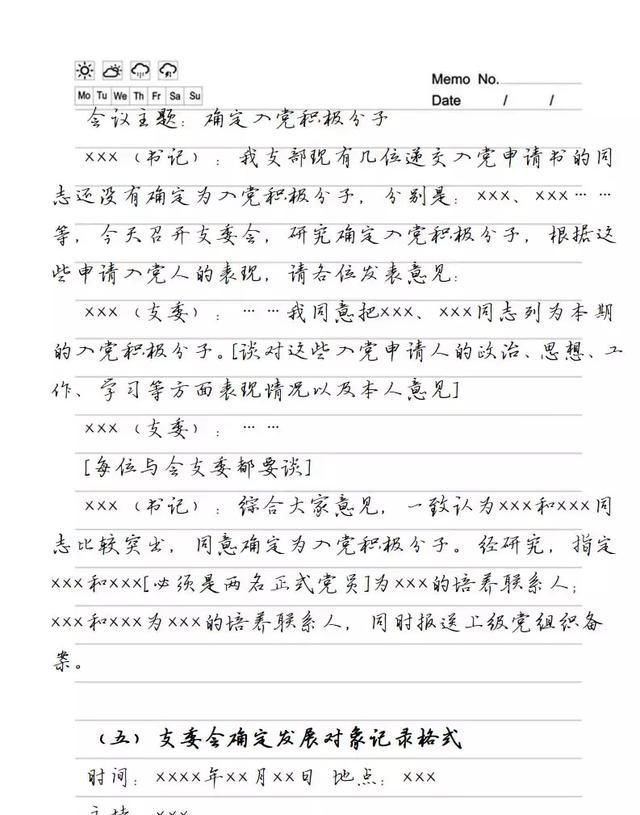 Memo No.
Mo Tu We Th Fr Sa Su
Date / /
会议主题：确定入党积极分子
×××（书记）：我支部现有几位递交入党申请书的同
志还没有确定为入党积极分子，分别是：×××、×××……
等，今天召开支委会，研究确定入党积极分子，根据这
些申请入党人的表现，请各位发表意见：
×××（支委）：……我同意把×××、×××同志列为本期
的入党积极分子。[谈对这些入党申请人的政治、思想、工
作、学习等方面表现情况以及本人意见]
×××（支委）：……
[每位与会支委都要谈]
×××（书记）：综合大家意见，一致认为×××和×××同
志比较突出，同意确定为入党积极分子。经研究，指定
×××和×××[必须是两名正式党员]为×××的培养联系人；
×××和×××为×××的培养联系人，同时报送上级党组织备
案。
（五）支委会确定发展对象记录格式
时间：××××年××月××日 地点：×××
主持：×××